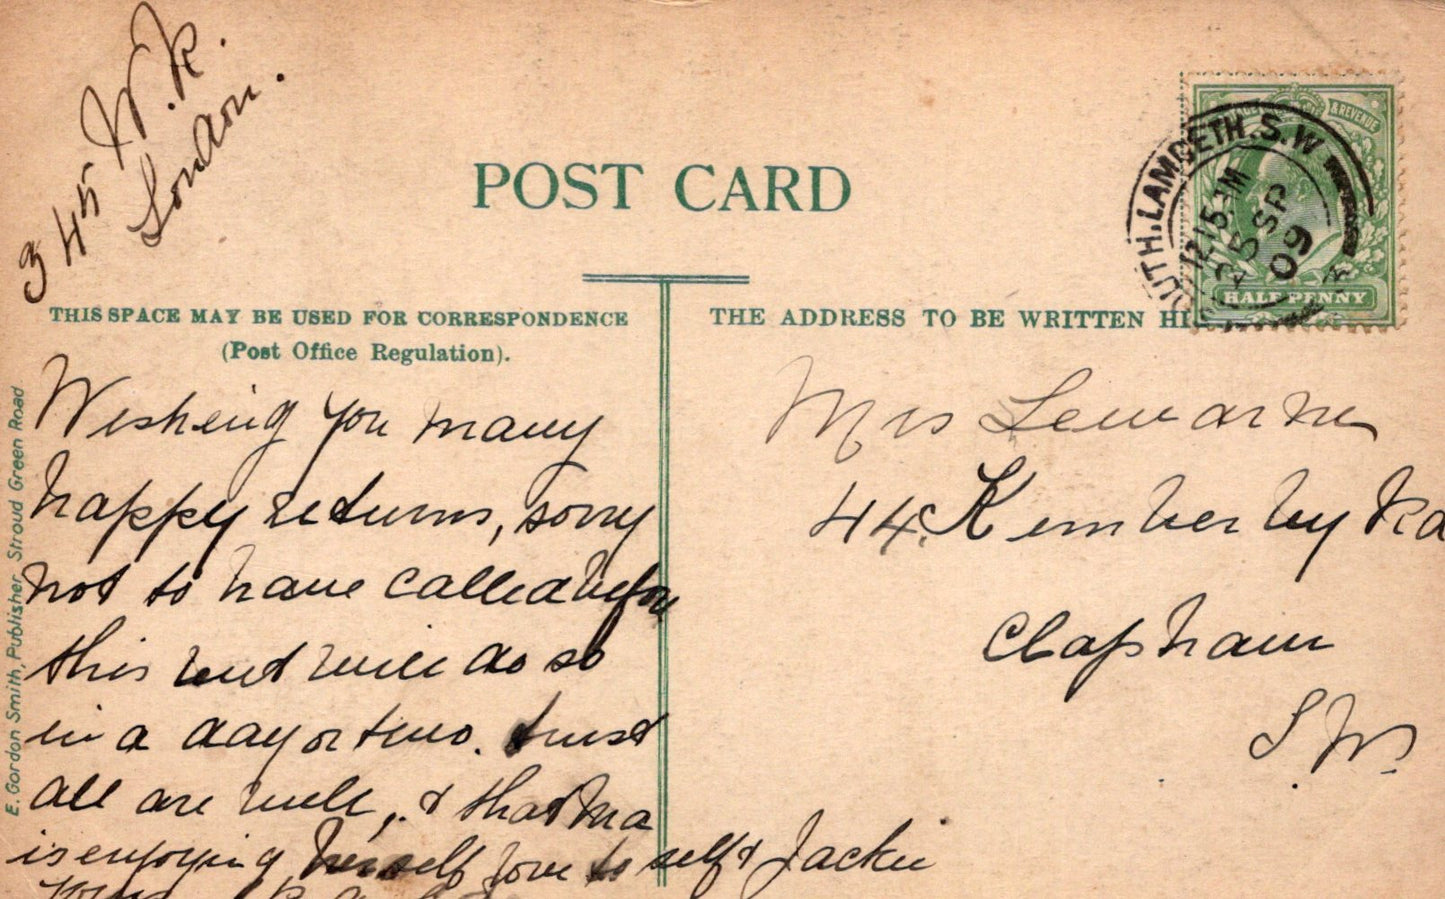 345 W. R.
London.
POST CARD
THIS SPACE MAY BE USED FOR CORRESPONDENCE
(Post Office Regulation).
Wishing you many
happy returns, sorry
not to have called before
this but will do so
in a day or two. trust
all are well, & that Ma
is enjoying herself love to self & Jackie
E. Gordon Smith, Publisher Stroud Green Road
& REVENUE
HALF PENNY
OUTH.LAMBETH.S.W
12.15
25 SP
09
THE ADDRESS TO BE WRITTEN
Mrs Lewarne
44 Kemberley Rd
Clapham
S.W.